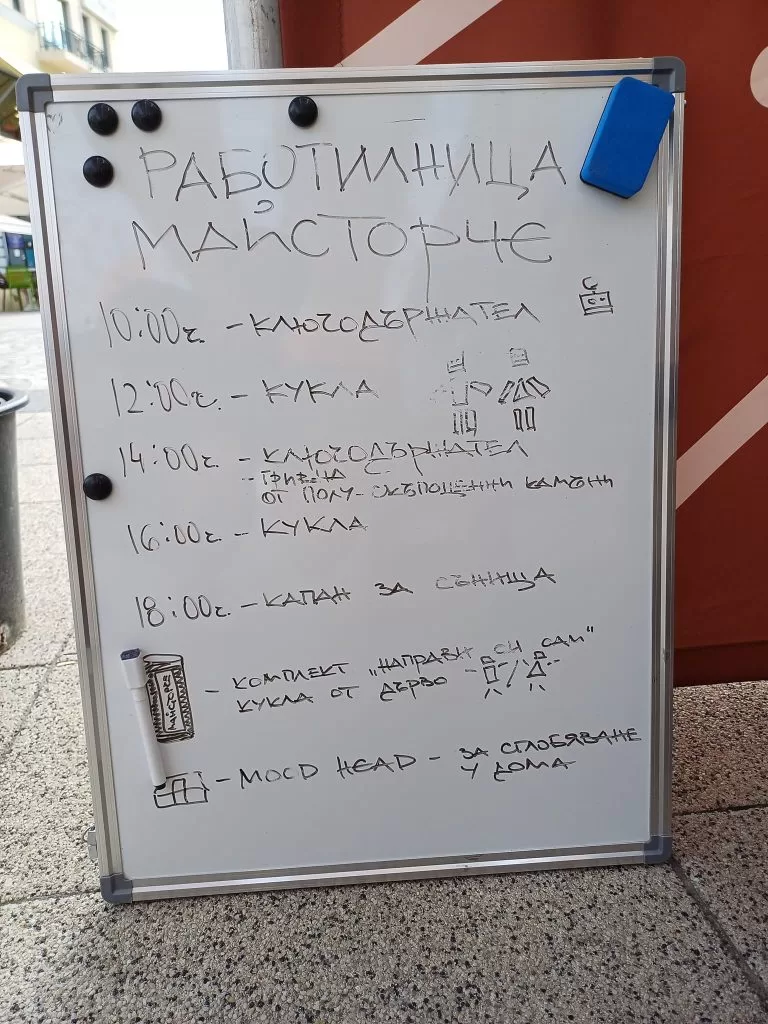 РАБОТИЛНИЦА
МАЙСТОРЧЕ
10:00г. - КЛЮЧОДЪРЖАТЕЛ
12:00г. - КУКЛА
14:00г. - КЛЮЧОДЪРЖАТЕЛ
ГРИВНА
ОТ ПОЛУ-СКЪПОЦЕННИ КАМЪНИ
16:00г. - КУКЛА
18:00г. - КАПАН ЗА СЪНИЩА
МАЙСТОРЧЕ
- КОМПЛЕКТ „НАПРАВИ СИ САМ"
КУКЛА ОТ ДЪРВО -
- MOCD HEAD - ЗА СГЛОБЯВАНЕ
У ДОМА